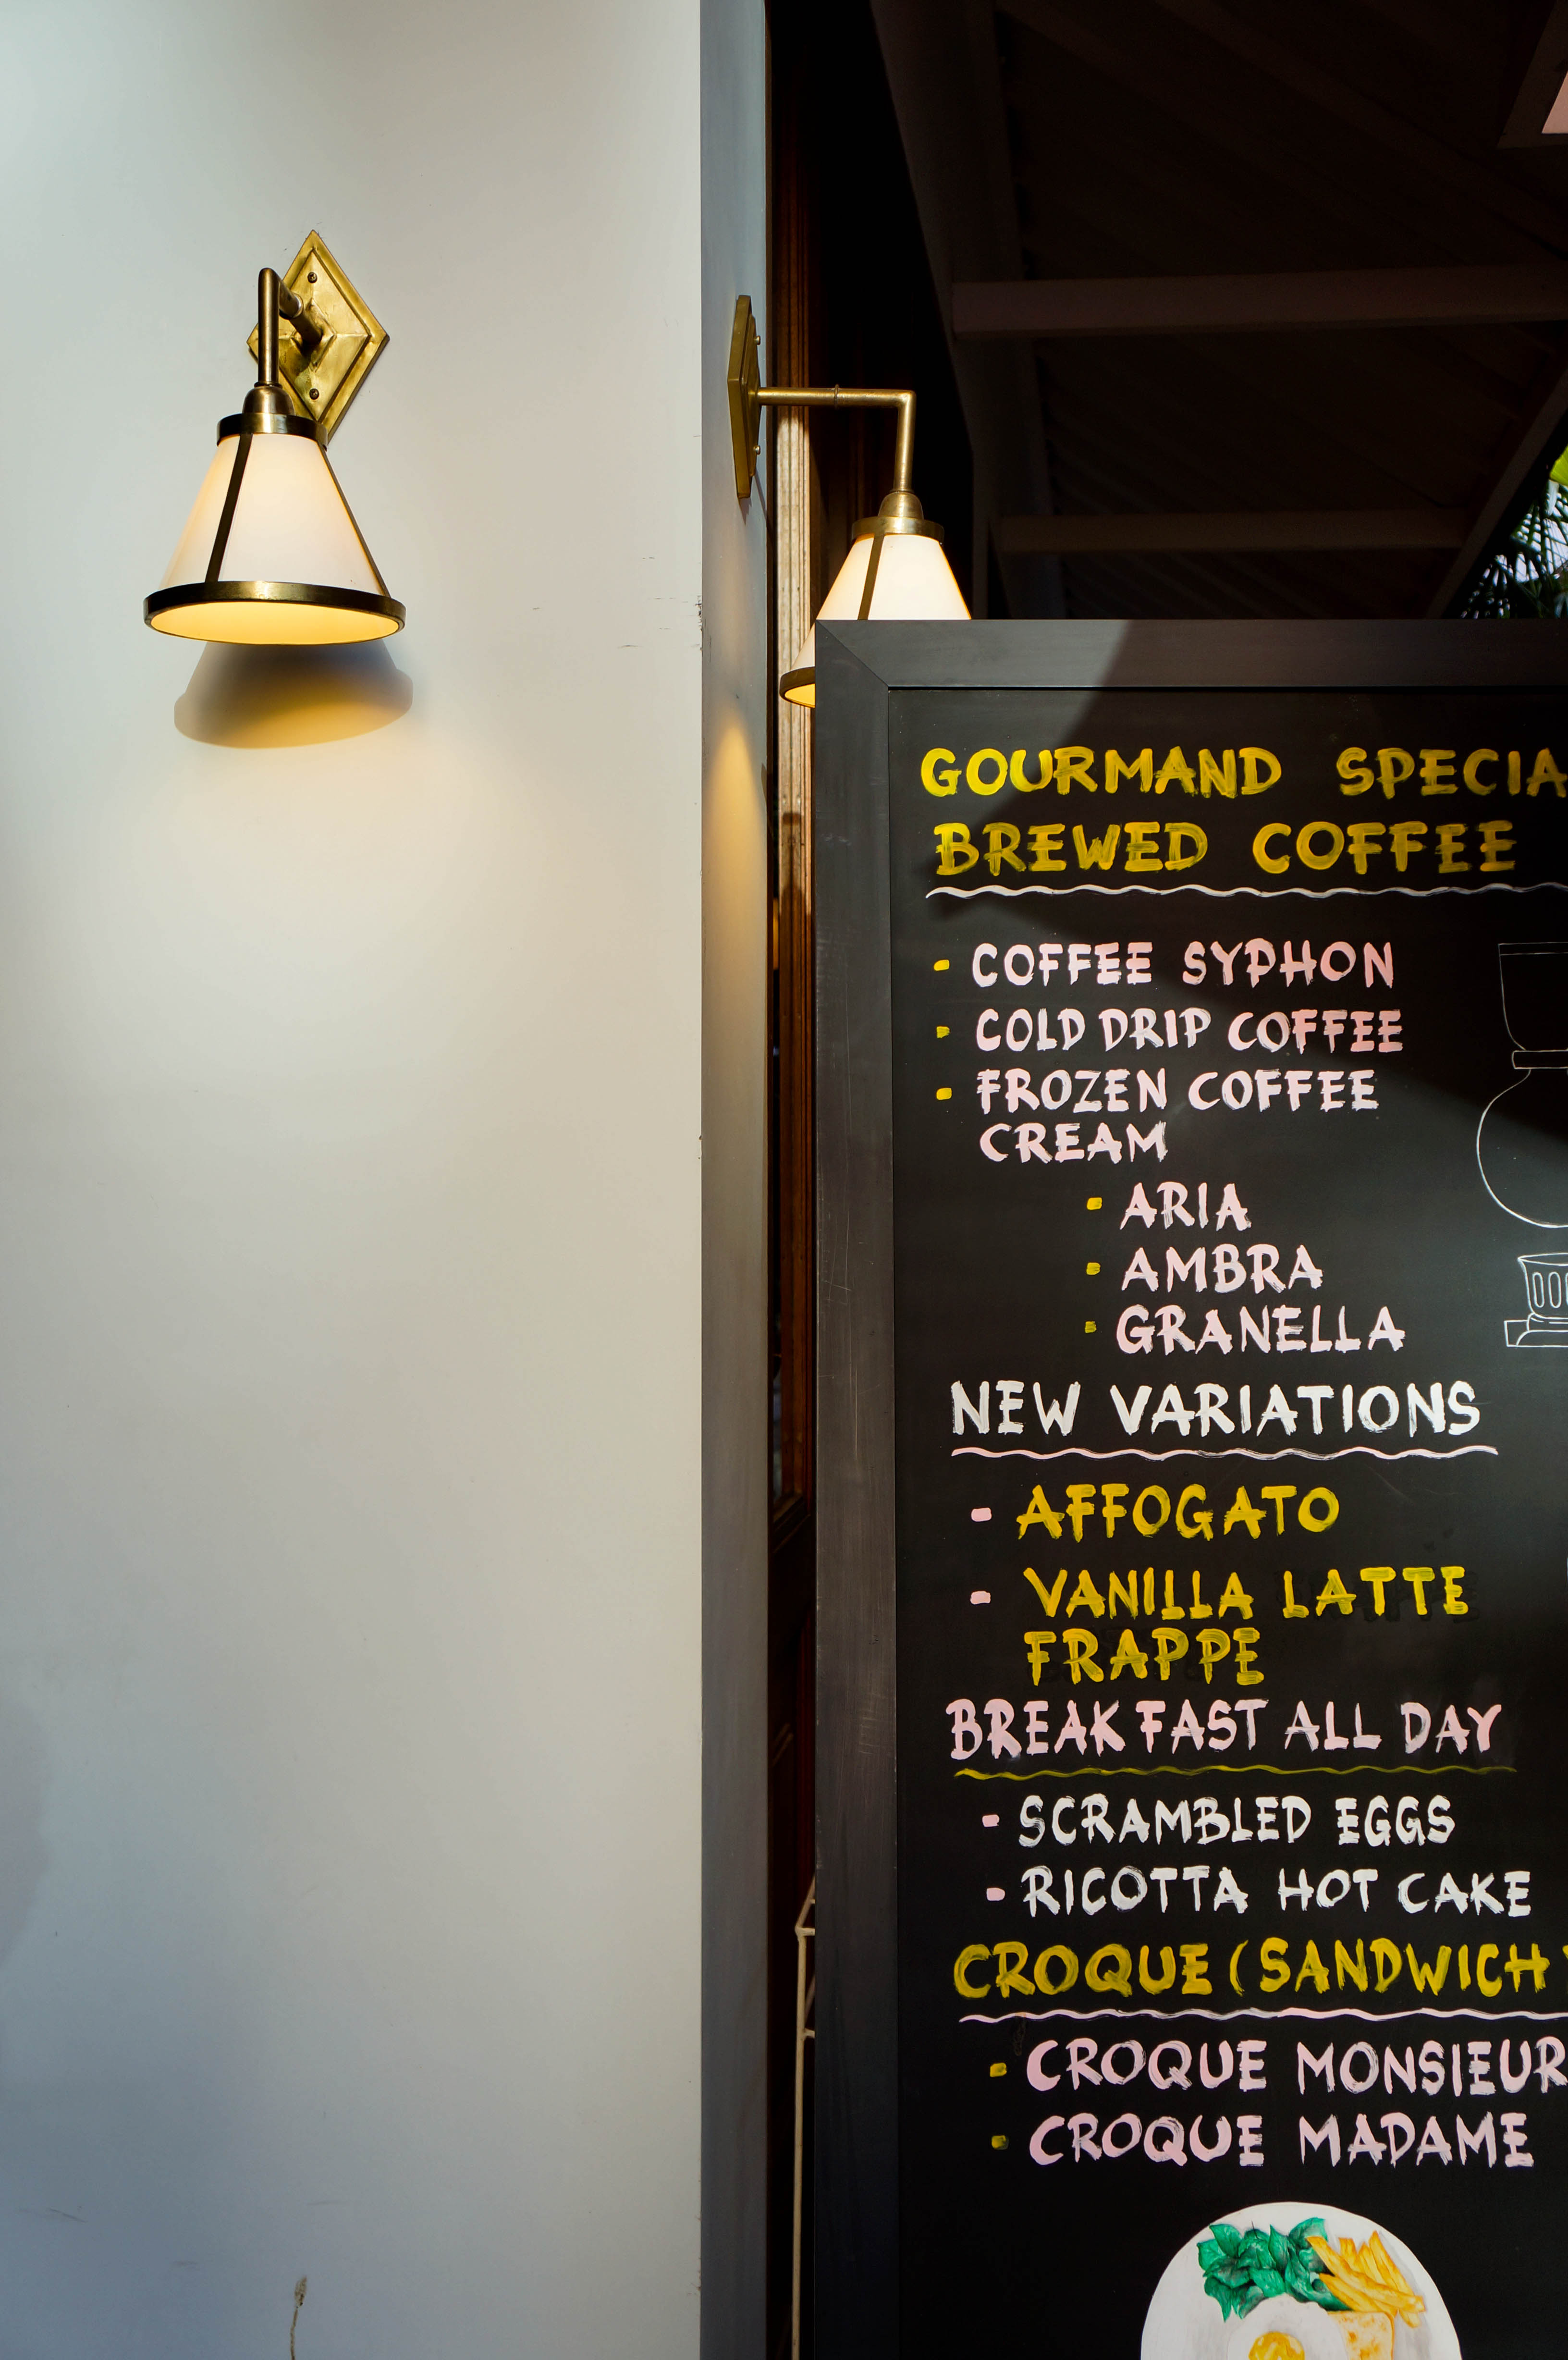 GOURMAND SPECIA
BREWED COFFEE
- COFFEE SYPHON
- COLD DRIP COFFEE
- FROZEN COFFEE
CREAM
- ARIA
- AMBRA
- GRANELLA
NEW VARIATIONS
- AFFOGATO
- VANILLA LATTE
FRAPPE
BREAKFAST ALL DAY
- SCRAMBLED EGGS
- RICOTTA HOT CAKE
CROQUE (SANDWICH)
- CROQUE MONSIEUR
- CROQUE MADAME